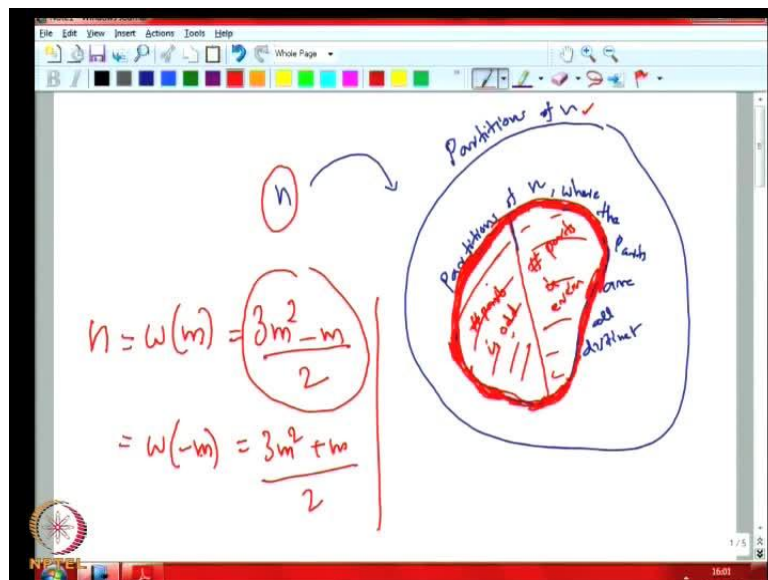 File Edit View Insert Actions Tools Help
Whole Page
Partitions of n ✓
n
Partitions of n, where the parts are all distinct
# parts is odd
# parts is even
n = w(m) = 3m² - m / 2
= w(-m) = 3m² + m / 2
1 / 5
NPTEL
16:01